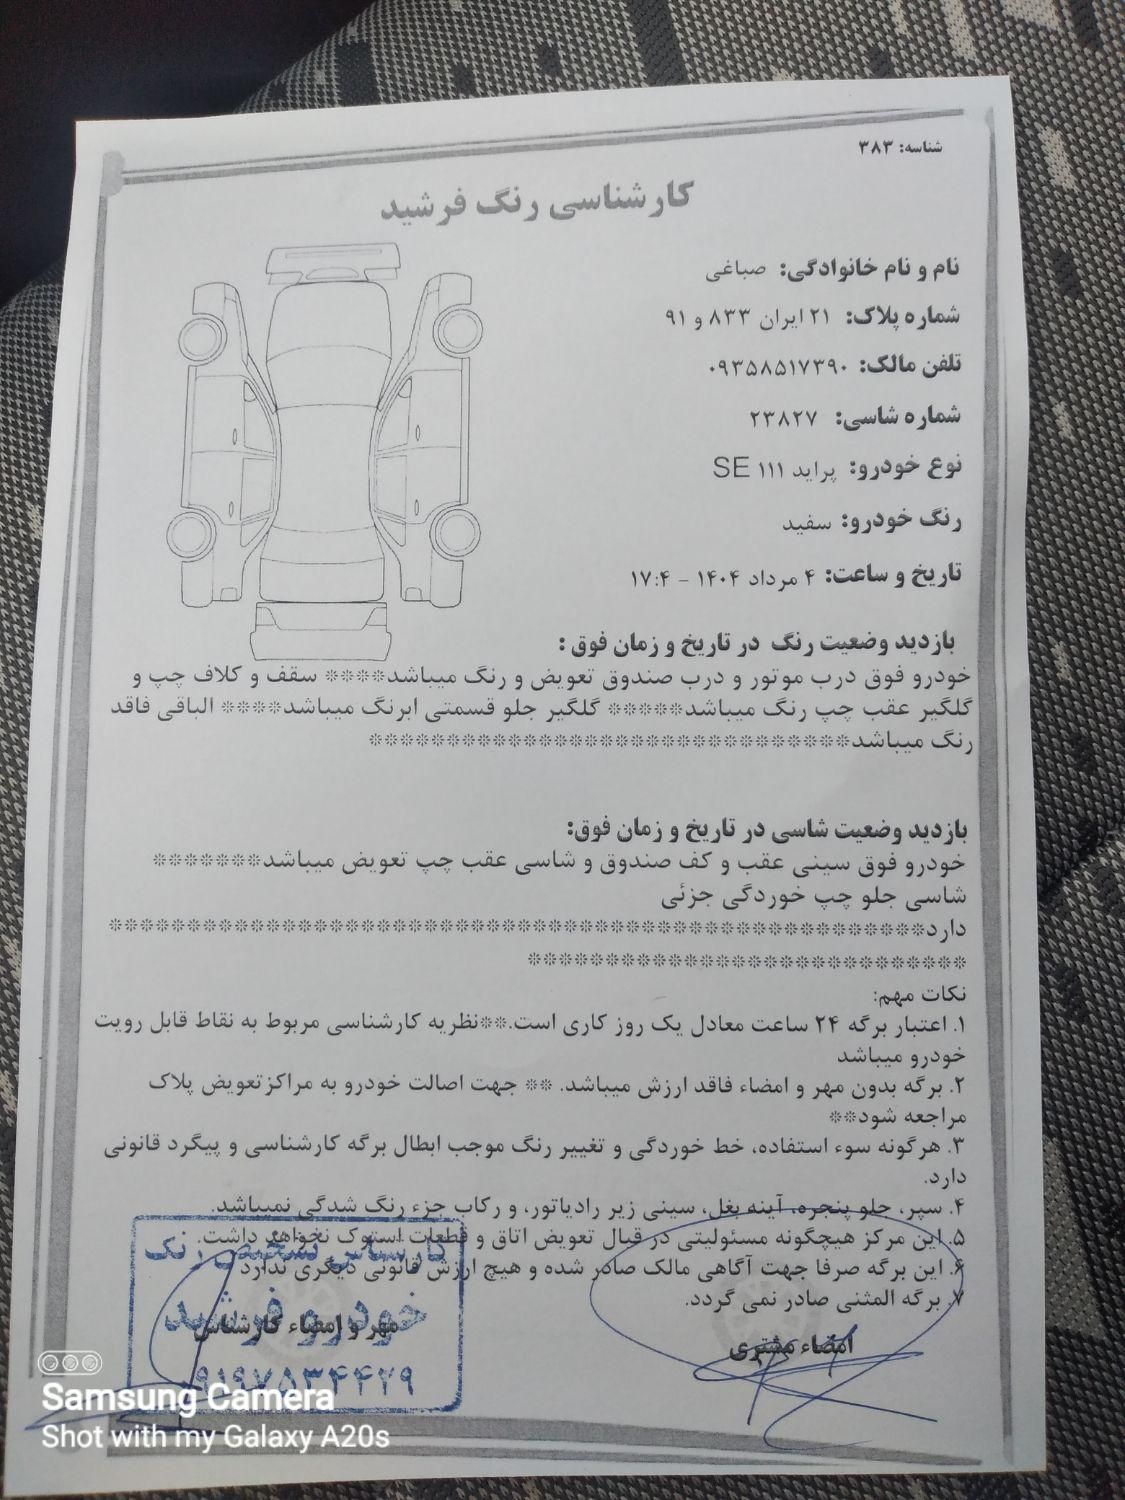 شناسه: ۳۸۳
کارشناسی رنگ فرشید
نام و نام خانوادگی: صباغی
شماره پلاک: ۲۱ ایران ۸۳۳ و ۹۱
تلفن مالک: ۰۹۳۵۸۵۱۷۳۹۰
شماره شاسی: ۲۳۸۲۷
نوع خودرو: پراید ۱۱۱ SE
رنگ خودرو: سفید
تاریخ و ساعت: ۴ مرداد ۱۴۰۴ - ۱۷:۴
بازدید وضعیت رنگ در تاریخ و زمان فوق :
خودرو فوق درب موتور و درب صندوق تعویض و رنگ میباشد**** سقف و کلاف چپ و
گلگیر عقب چپ رنگ میباشد***** گلگیر جلو قسمتی ابرنگ میباشد**** الباقی فاقد
رنگ میباشد*******************************
بازدید وضعیت شاسی در تاریخ و زمان فوق:
خودرو فوق سینی عقب و کف صندوق و شاسی عقب چپ تعویض میباشد*******
شاسی جلو چپ خوردگی جزئی
دارد*****************************************************
****************************
نکات مهم:
۱. اعتبار برگه ۲۴ ساعت معادل یک روز کاری است.**نظریه کارشناسی مربوط به نقاط قابل رویت
خودرو میباشد
۲. برگه بدون مهر و امضاء فاقد ارزش میباشد. ** جهت اصالت خودرو به مراکزتعویض پلاک
مراجعه شود**
۳. هرگونه سوء استفاده، خط خوردگی و تغییر رنگ موجب ابطال برگه کارشناسی و پیگرد قانونی
دارد.
۴. سپر، جلو پنجره، آینه بغل، سینی زیر رادیاتور، و رکاب جزء رنگ شدگی نمیباشد.
۵. این مرکز هیچگونه مسئولیتی در قبال تعویض اتاق و قطعات استوک نخواهد داشت.
۶. این برگه صرفا جهت آگاهی مالک صادر شده و هیچ ارزش قانونی دیگری ندارد
۷. برگه المثنی صادر نمی گردد.
امضاء مشتری
مهر و امضاء کارشناس
کارشناس تشخیص رنگ
خودرو فرشید
۹۱۹۷۵۳۴۴۲۹
Samsung Camera
Shot with my Galaxy A20s